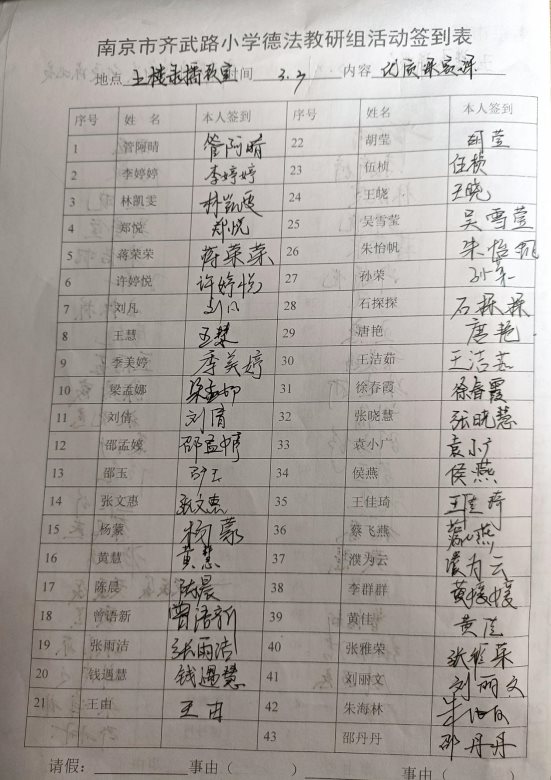 南京市齐武路小学德法教研组活动签到表
地点 五楼录播教室 时间 3.7 内容
序号 姓 名 本人签到 序号 姓名 本人签到
1 管阿晴 管阿晴 22 胡莹 胡莹
2 李婷婷 李婷婷 23 伍桢 伍桢
3 林凯雯 林凯雯 24 王晓 王晓
4 郑悦 郑悦 25 吴雪莹 吴雪莹
5 蒋荣荣 蒋荣荣 26 朱怡帆 朱怡帆
6 许婷悦 许婷悦 27 孙荣 孙荣
7 刘凡 刘凡 28 石探探 石探探
8 王慧 王慧 29 唐艳 唐艳
9 季美婷 季美婷 30 王洁茹 王洁茹
10 梁孟娜 梁孟娜 31 徐春霞 徐春霞
11 刘倩 刘倩 32 张晓慧 张晓慧
12 邵孟婷 邵孟婷 33 袁小广 袁小广
13 邵玉 邵玉 34 侯燕 侯燕
14 张文惠 张文惠 35 王佳琦 王佳琦
15 杨蒙 杨蒙 36 蔡飞燕 蔡飞燕
16 黄慧 黄慧 37 濮为云 濮为云
17 陈晨 陈晨 38 李群群 黄媛媛
18 曾语新 曾语新 39 黄佳 黄佳
19 张雨洁 张雨洁 40 张雅荣 张雅荣
20 钱遇慧 钱遇慧 41 刘丽文 刘丽文
21 王由 王由 42 朱海林 朱海林
43 邵丹丹 邵丹丹
请假： 事由（ ） 事由（